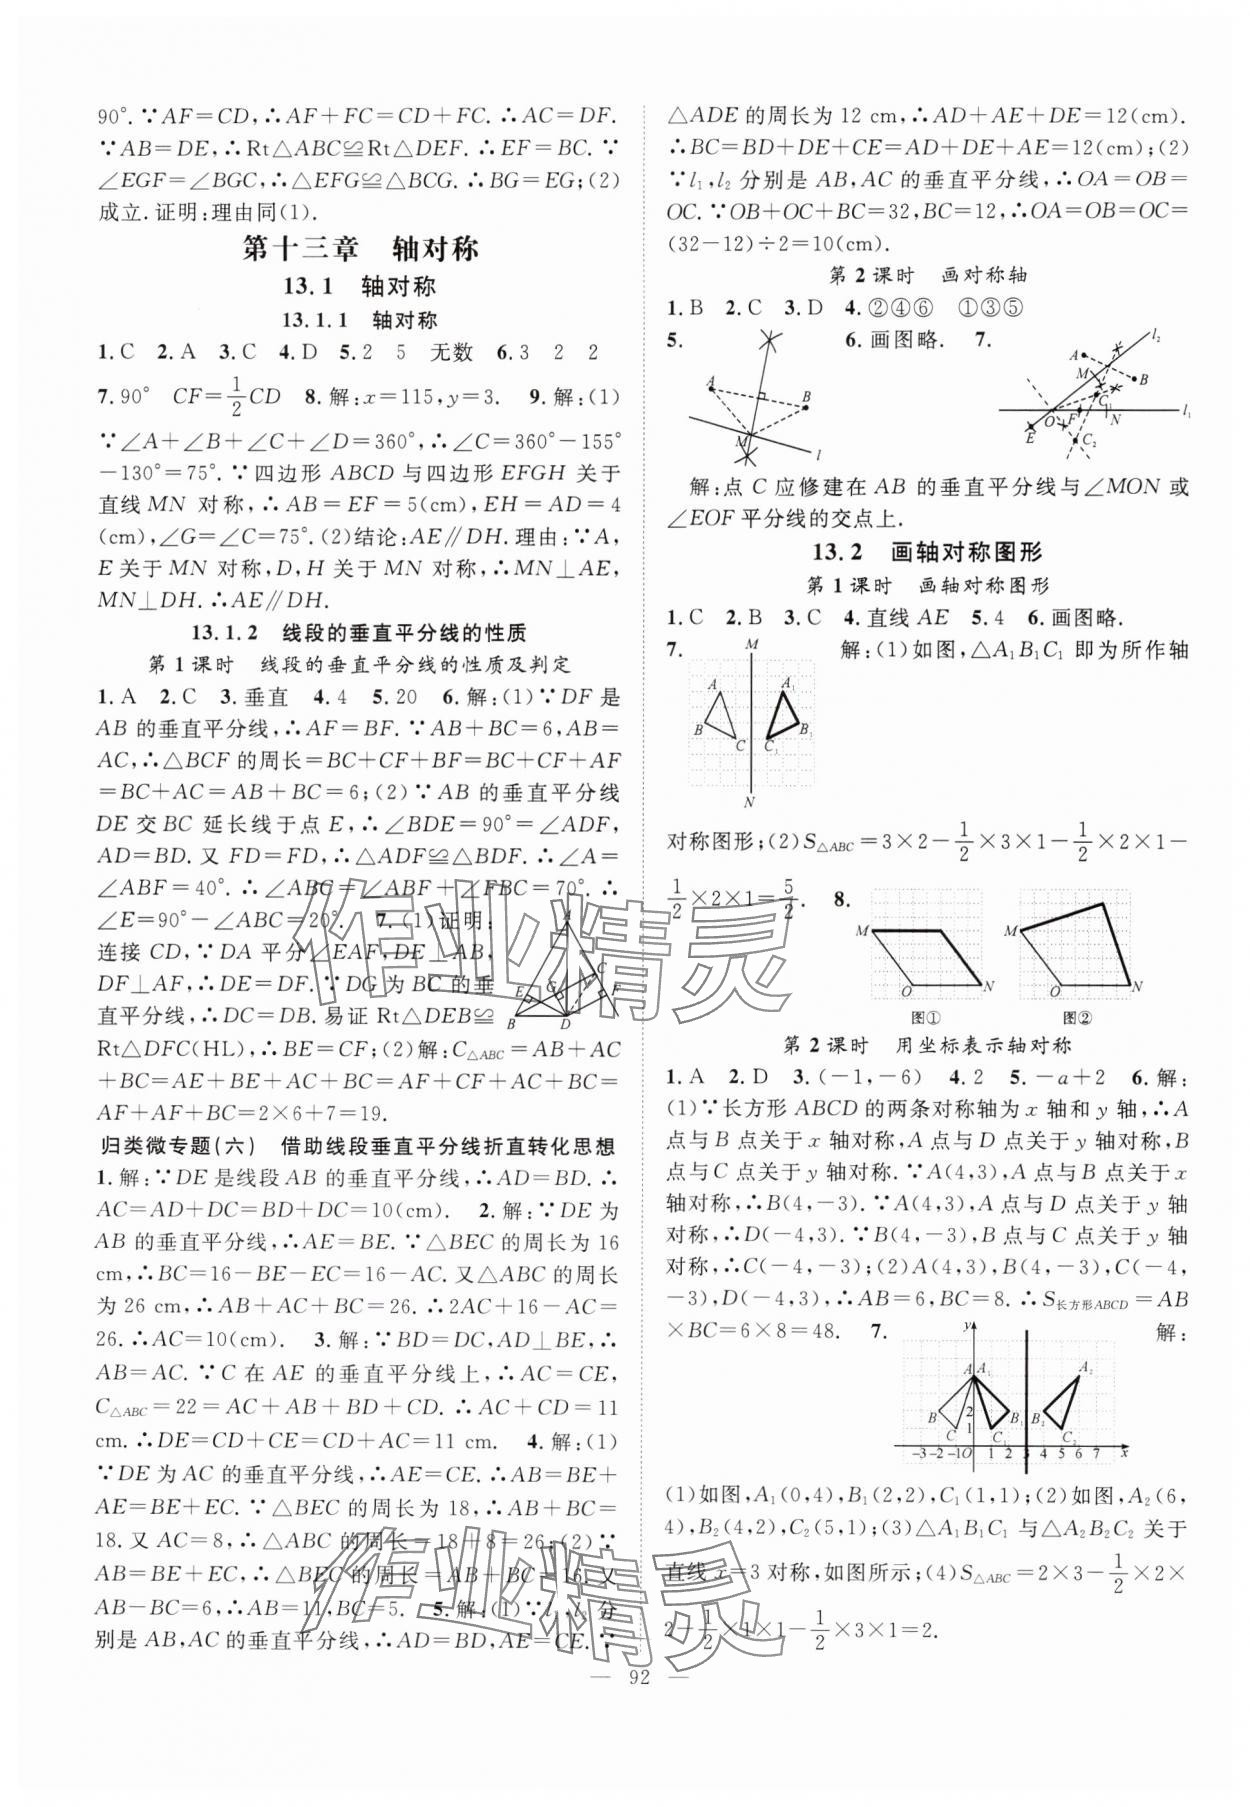 90°. ∵AF=CD,∴AF+FC=CD+FC. ∴AC=DF.
∵AB=DE,∴Rt△ABC≌Rt△DEF. ∴EF=BC. ∵
∠EGF=∠BGC,∴△EFG≌△BCG. ∴BG=EG;(2)
成立.证明:理由同(1).
第十三章 轴对称
13.1 轴对称
13.1.1 轴对称
1.C 2.A 3.C 4.D 5.2 5 无数 6.3 2 2
7.90° CF=1/2CD 8.解:x=115,y=3. 9.解:(1)
∵∠A+∠B+∠C+∠D=360°,∴∠C=360°-155°
-130°=75°. ∵四边形 ABCD 与四边形 EFGH 关于
直线 MN 对称,∴AB=EF=5(cm),EH=AD=4
(cm),∠G=∠C=75°.(2)结论:AE∥DH.理由:∵A,
E 关于 MN 对称,D,H 关于 MN 对称,∴MN⊥AE,
MN⊥DH. ∴AE∥DH.
13.1.2 线段的垂直平分线的性质
第1课时 线段的垂直平分线的性质及判定
1.A 2.C 3.垂直 4.4 5.20 6.解:(1)∵DF 是
AB 的垂直平分线,∴AF=BF. ∵AB+BC=6,AB=
AC,∴△BCF 的周长=BC+CF+BF=BC+CF+AF
=BC+AC=AB+BC=6;(2)∵AB 的垂直平分线
DE 交 BC 延长线于点 E,∴∠BDE=90°=∠ADF,
AD=BD. 又 FD=FD,∴△ADF≌△BDF. ∴∠A=
∠ABF=40°. ∴∠ABC=∠ABF+∠FBC=70°. ∴
∠E=90°-∠ABC=20°. 7.(1)证明:
连接 CD,∵DA 平分∠EAF,DE⊥AB,
DF⊥AF,∴DE=DF. ∵DG 为 BC 的垂
直平分线,∴DC=DB. 易证 Rt△DEB≌
A
E G C F
B D
Rt△DFC(HL),∴BE=CF;(2)解:C△ABC=AB+AC
+BC=AE+BE+AC+BC=AE+CF+AC+BC=
AF+AF+BC=2×6+7=19.
归类微专题(六) 借助线段垂直平分线折直转化思想
1.解:∵DE 是线段 AB 的垂直平分线,∴AD=BD. ∴
AC=AD+DC=BD+DC=10(cm). 2.解:∵DE 为
AB 的垂直平分线,∴AE=BE. ∵△BEC 的周长为 16
cm,∴BC=16-BE-EC=16-AC. 又△ABC 的周长
为 26 cm,∴AB+AC+BC=26. ∴2AC+16-AC=
26. ∴AC=10(cm). 3.解:∵BD=DC,AD⊥BE,∴
AB=AC. ∵C 在 AE 的垂直平分线上,∴AC=CE,
C△ABC=22=AC+AB+BD+CD. ∴AC+CD=11
cm. ∴DE=CD+CE=CD+AC=11 cm. 4.解:(1)
∵DE 为 AC 的垂直平分线,∴AE=CE. ∴AB=BE+
AE=BE+EC. ∵△BEC 的周长为 18,∴AB+BC=
18. 又 AC=8,∴△ABC 的周长=18+8=26;(2)∵
AB=BE+EC,∴△BEC 的周长=AB+BC=16. 又
AB-BC=6,∴AB=11,BC=5. 5.解:(1)∵l₁,l₂分
别是 AB,AC 的垂直平分线,∴AD=BD,AE=CE. ∵
△ADE 的周长为 12 cm,∴AD+AE+DE=12(cm).
∴BC=BD+DE+CE=AD+DE+AE=12(cm);(2)
∵l₁,l₂ 分别是 AB,AC 的垂直平分线,∴OA=OB=
OC. ∵OB+OC+BC=32,BC=12,∴OA=OB=OC=
(32-12)÷2=10(cm).
第2课时 画对称轴
1.B 2.C 3.D 4.②④⑥ ①③⑤
5. 6.画图略. 7.
A B M l
A B M C₁ O F N l₁ l₂ E C₂
解:点 C 应修建在 AB 的垂直平分线与∠MON 或
∠EOF 平分线的交点上.
13.2 画轴对称图形
第1课时 画轴对称图形
1.C 2.B 3.C 4.直线 AE 5.4 6.画图略.
7. 解:(1)如图,△A₁B₁C₁ 即为所作轴
M
A A₁
B B₁
C C₁
N
对称图形;(2)S△ABC=3×2-1/2×3×1-1/2×2×1-
1/2×2×1=5/2. 8.
M O N M O N
图① 图②
第2课时 用坐标表示轴对称
1.A 2.D 3.(-1,-6) 4.2 5.-a+2 6.解:
(1)∵长方形 ABCD 的两条对称轴为 x 轴和 y 轴,∴A
点与 B 点关于 x 轴对称,A 点与 D 点关于 y 轴对称,B
点与 C 点关于 y 轴对称. ∵A(4,3),A 点与 B 点关于 x
轴对称,∴B(4,-3). ∵A(4,3),A 点与 D 点关于 y 轴
对称,∴D(-4,3). ∵B(4,-3),B 点与 C 点关于 y 轴
对称,∴C(-4,-3);(2)A(4,3),B(4,-3),C(-4,
-3),D(-4,3),∴AB=6,BC=8. ∴S长方形ABCD=AB
×BC=6×8=48. 7. 解:
y
A A₁ A₂
B 2 B₁ B₂
C 1 C₁ C₂
-3-2-1O 1 2 3 4 5 6 7 x
(1)如图,A₁(0,4),B₁(2,2),C₁(1,1);(2)如图,A₂(6,
4),B₂(4,2),C₂(5,1);(3)△A₁B₁C₁ 与△A₂B₂C₂ 关于
直线 x=3 对称,如图所示;(4)S△ABC=2×3-1/2×2×
2-1/2×1×1-1/2×3×1=2.
— 92 —
作业精灵
作业精灵